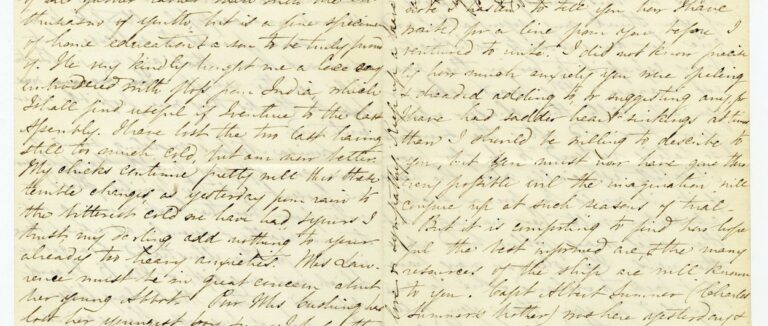 of home education & a son to be truly proud
of. He very kindly brought me a lace cap
embroidered with floss from India which
I shall find useful if I venture to the last
Assembly. I have lost the two last having
still too much cold, but am now better.
My chicks continue pretty well thro' these
terrible changes, as yesterday from rain to
the bitterest cold we have had,
trust my darling add nothing to your
already too heavy anxieties. Mrs Law-
rence must be in great concern about
her young Abbott. Our Mrs. Cushing has
lost her youngest
hasten to tell you how I have
waited for a line from you before I
ventured to write. I did not know precise-
ly how much anxiety you were feeling
& dreaded adding to or suggesting any, for
I have had sadder heart sinkings at times
than I should be willing to describe to
you, but you must now have gone thro'
every possible evil the imagination will
conjure up at such seasons of trial -
But it is comforting to find how hope
ful the best informed are, & the many
resources of the ship are well known
to you. Capt Albert Sumner (Charles
Sumner's brother) was here yesterday &